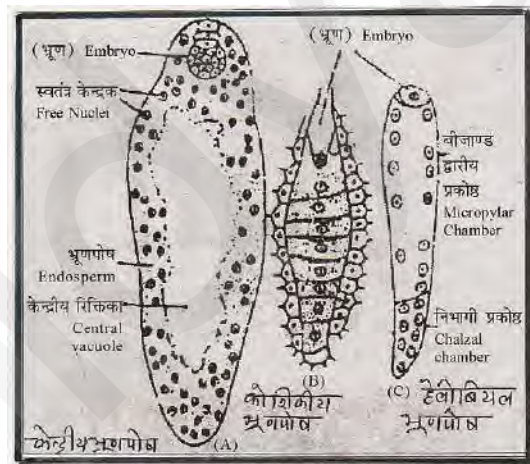 (भ्रूण) Embryo
स्वतंत्र केन्द्रक
Free Nuclei
भ्रूणपोष
Endosperm
केन्द्रीय रिक्तिका
Central
vacuole
(A)
केन्द्रीयभ्रूणपोष
(भ्रूण) Embryo
(B)
कोशिकीय
भ्रूणपोष
बीजाण्ड
द्वारीय
प्रकोष्ठ
Micropylar
Chamber
निभागी प्रकोष्ठ
Chalzal
chamber
(C) हेलोबियल
भ्रूणपोष